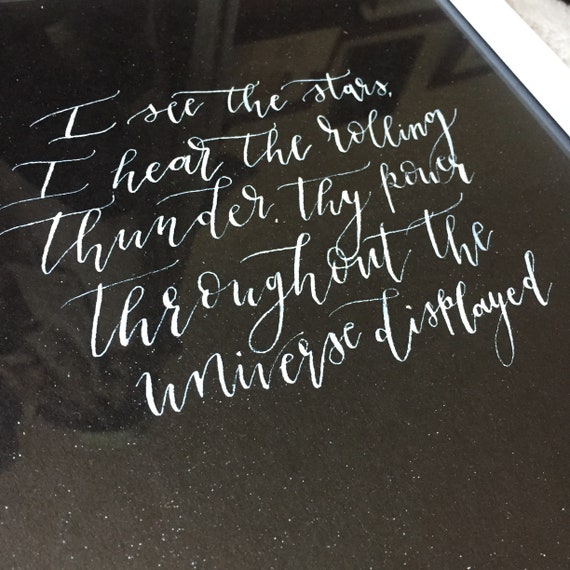 I see the stars,
I hear the rolling
thunder. Thy power
throughout the
universe displayed